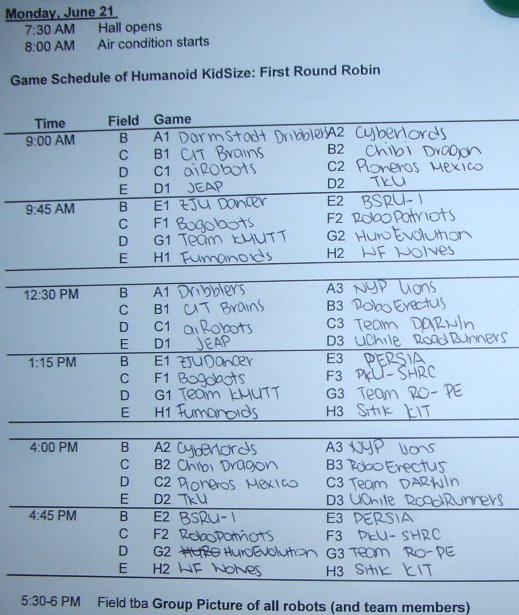 Monday, June 21
7:30 AM Hall opens
8:00 AM Air condition starts
Game Schedule of Humanoid KidSize: First Round Robin
Time Field Game
9:00 AM B A1 Darmstadt Dribblers A2 Cyberlords
C B1 CIT Brains B2 Chibi Dragon
D C1 aiRobots C2 Pioneros Mexico
E D1 JEAP D2 TKU
9:45 AM B E1 ZJU Dancer E2 BSRU-1
C F1 Bogobots F2 RoboPatriots
D G1 Team KMUTT G2 HuroEvolution
E H1 Fumanoids H2 WF Wolves
12:30 PM B A1 Dribblers A3 NYP Lions
C B1 CIT Brains B3 RoboErectus
D C1 aiRobots C3 Team DARwIn
E D1 JEAP D3 UChile RoadRunners
1:15 PM B E1 ZJUDancer E3 PERSIA
C F1 Bogobots F3 PKU-SHRC
D G1 Team KMUTT G3 Team RO-PE
E H1 Fumanoids H3 Sitik KIT
4:00 PM B A2 Cyberlords A3 NYP Lions
C B2 Chibi Dragon B3 RoboErectus
D C2 Pioneros Mexico C3 Team DARwIn
E D2 TKU D3 UChile RoadRunners
4:45 PM B E2 BSRU-1 E3 PERSIA
C F2 RoboPatriots F3 PKU-SHRC
D G2 HuroEvolution G3 Team RO-PE
E H2 WF Wolves H3 Sitik KIT
5:30-6 PM Field tba Group Picture of all robots (and team members)